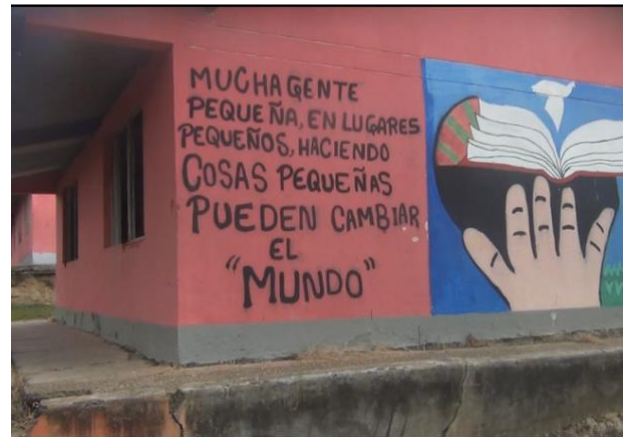 MUCHA GENTE
PEQUEÑA, EN LUGARES
PEQUEÑOS, HACIENDO
COSAS PEQUEÑAS
PUEDEN CAMBIAR
EL
"MUNDO"